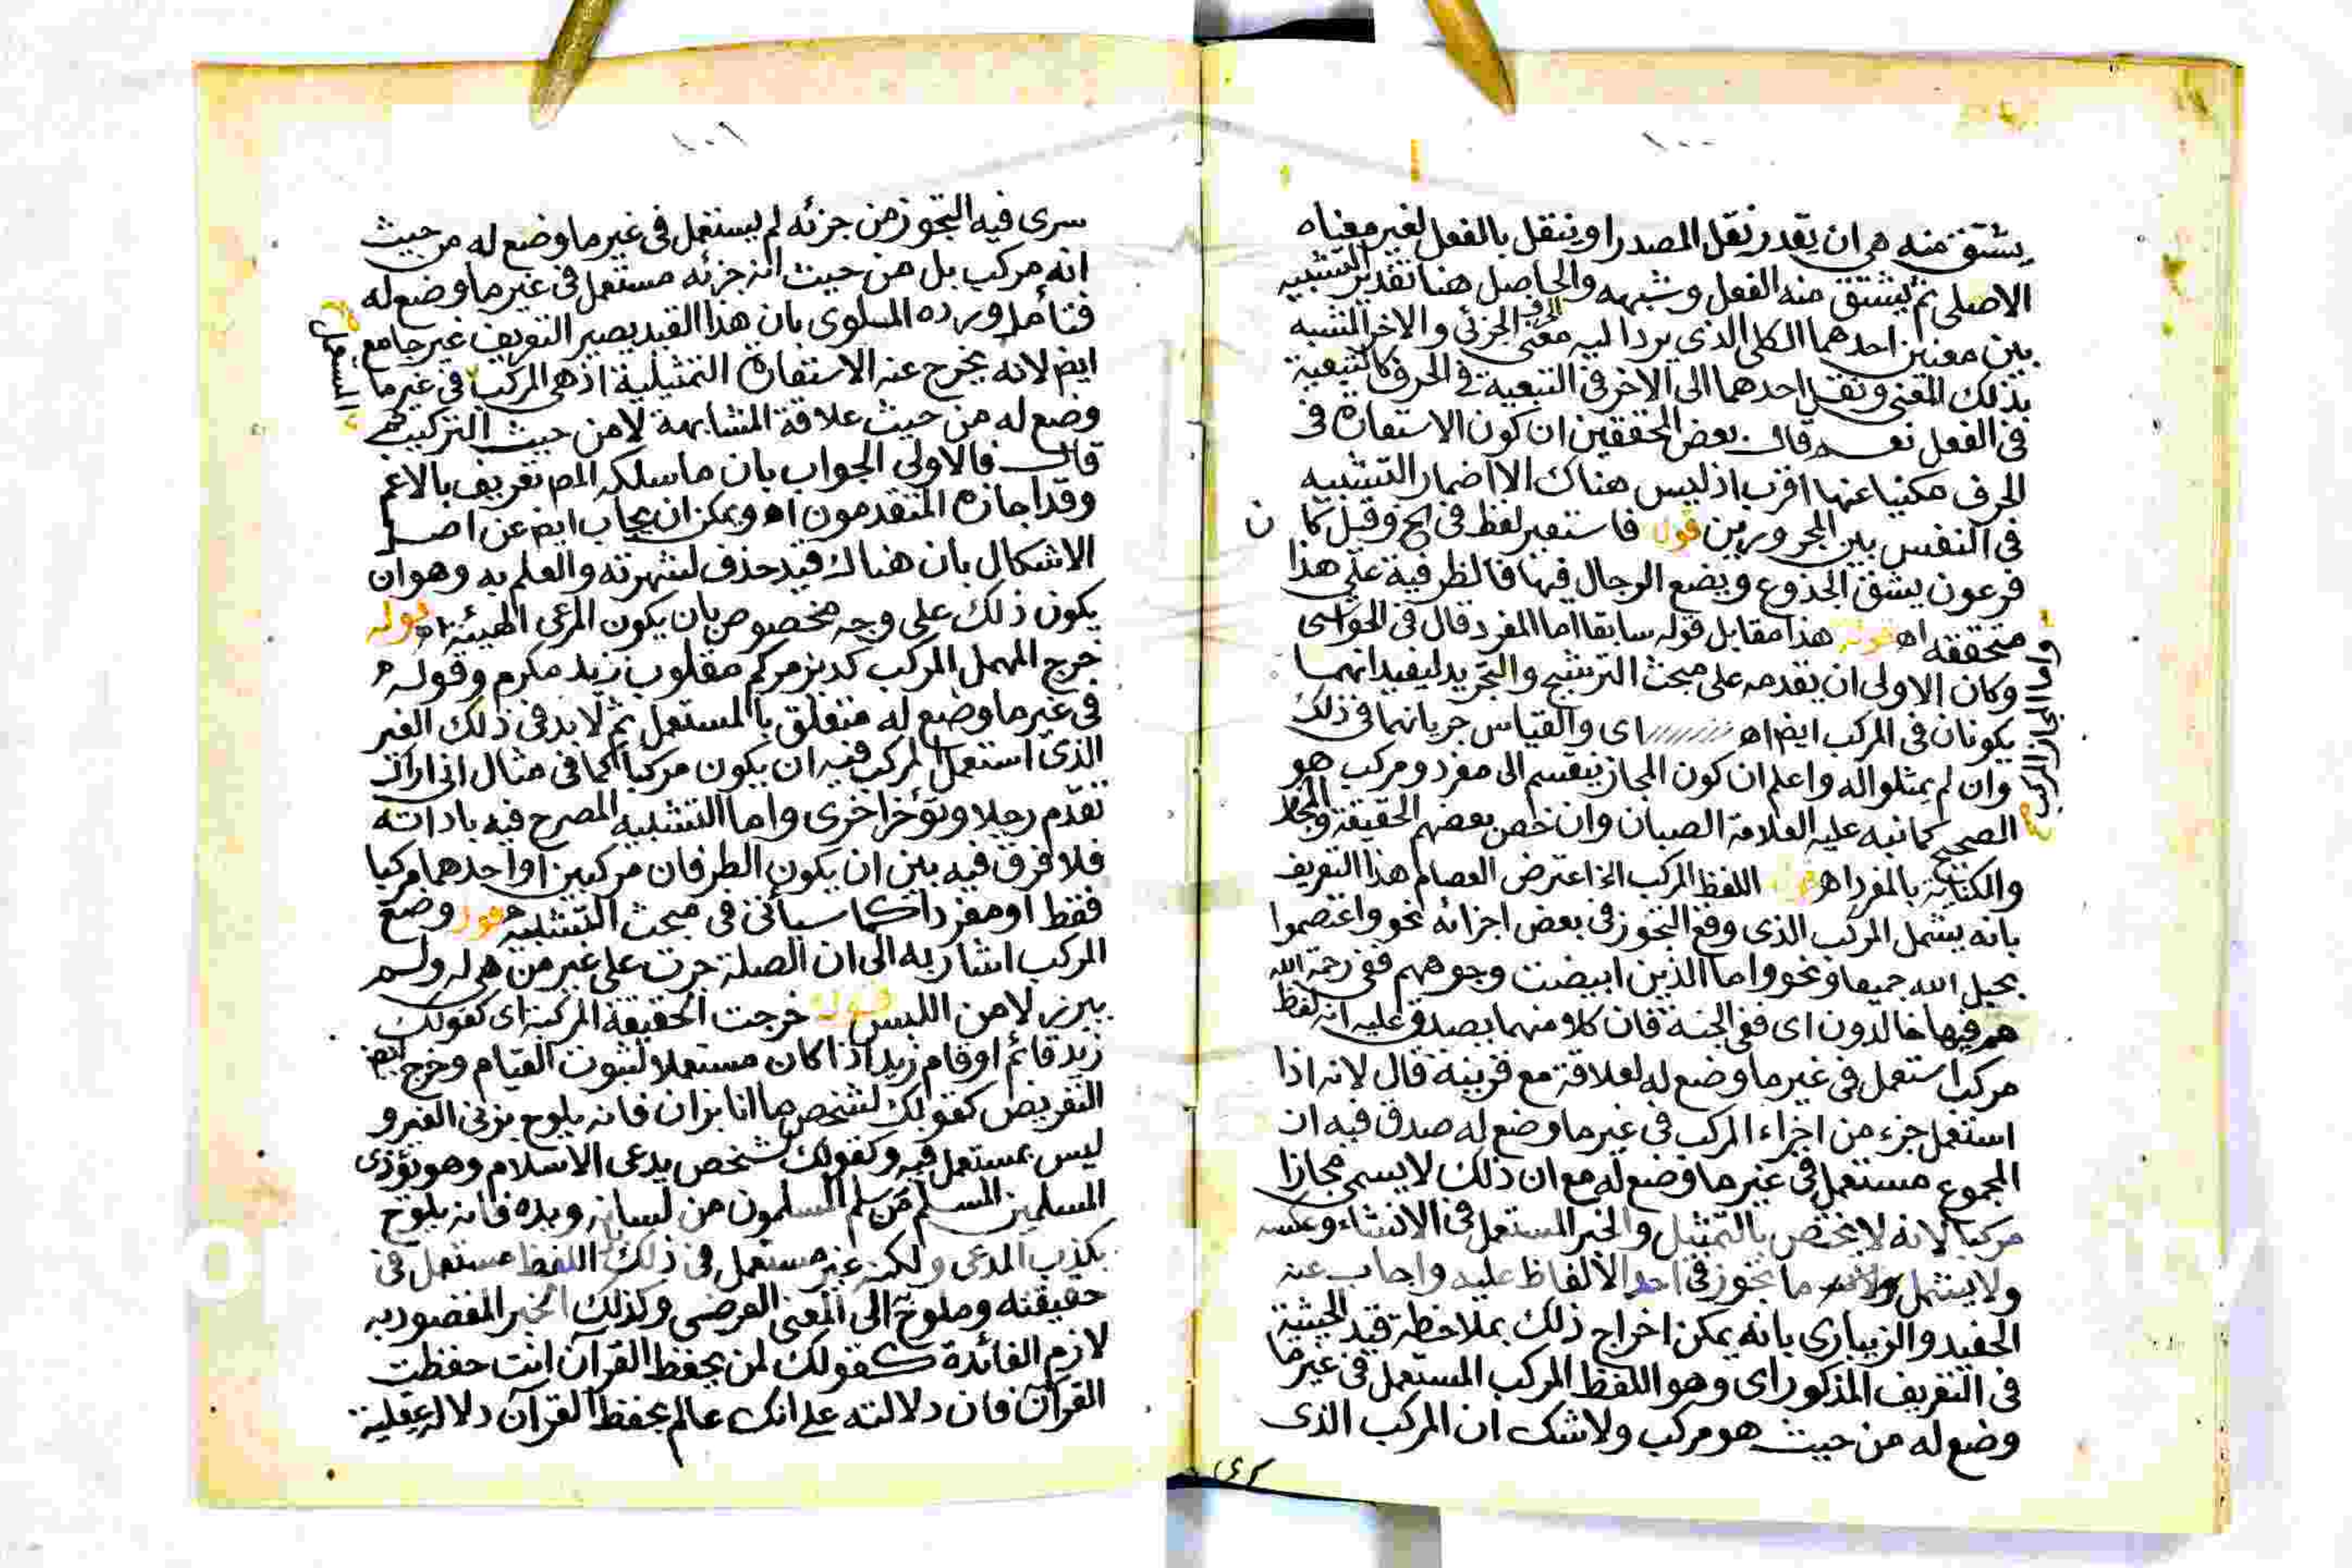 ١٠٠
يشتق منه هي ان يقدر نقل المصدر او ينتقل بالفعل لغير معناه
الاصلي ثم يشتق منه الفعل وشبهه والحاصل هنا تقدير التشبيه
بين معنيين احدهما الكلي الذي يرد اليه معنى الحرف الجزئي والاخر المشبه
بذلك المعنى ونقل احدهما الى الاخر في التبعية في الحرف كالتبعية
في الفعل نعم قال بعض المحققين ان كون الاستعارة في
الحرف مكنيا عنها اقرب اذ ليس هناك الا اضمار التشبيه
في النفس بين المجرورين قوله فاستعير لفظ في الخ وقيل كان
فرعون يشق الجذوع ويضع الرجال فيها فالظرفية على هذا
متحققه اه قوله هذا مقابل قوله سابقا اما المفرد قال في الحواشى
واما المجاز المركب صح
وكان الاولى ان يقدمه على مبحث الترشيح والتجريد ليفيد انهما
يكونان في المركب ايضا اه اى والقياس جريانهما في ذلك
وان لم يمثلوا له واعلم ان كون المجاز ينقسم الى مفرد ومركب هو
الصحيح كما نبه عليه العلامة الصبان وان خص بعضهم الحقيقة والمجاز
والكناية بالمفرد اه قوله اللفظ المركب الخ اعترض العصام هذا التعريف
بانه يشمل المركب الذى وقع التجوز في بعض اجزائه نحو واعتصموا
بحبل الله جميعا ونحو واما الذين ابيضت وجوههم ففي رحمة الله
هم فيها خالدون اى ففي الجنة فان كلا منهما يصدق عليه انه لفظ
مركب استعمل في غير ما وضع له لعلاقة مع قرينة قال لانه اذا
استعمل جزء من اجزاء المركب في غير ما وضع له صدق فيه ان
المجموع مستعمل في غير ما وضع له مع ان ذلك لا يسمى مجازا
مركبا لانه لا يختص بالتمثيل والخبر المستعمل في الانشاء وعكسه
ولا يشمل ما تجوز في احد الالفاظ عليه واجاب عنه
الحفيد والزيبارى بانه يمكن اخراج ذلك بملاحظة قيد الحيثية
في التعريف المذكور اى وهو اللفظ المركب المستعمل في غير ما
وضع له من حيث هو مركب ولا شك ان المركب الذى
سرى
١٠١
سرى فيه التجوز من جزئه لم يستعمل في غير ما وضع له من حيث
انه مركب بل من حيث ان جزئه مستعمل في غير ما وضع له
فتأمل ورده الملوى بان هذا القيد يصير التعريف غير جامع
ايضا لانه يخرج عنه الاستعارة التمثيلية اذ هى المركب في غير ما
المستعمل صح
وضع له من حيث علاقة المشابهة لا من حيث التركيب ثم
قال فالاولى الجواب بان ما سلكه المص تعريف بالاعم
وقد اجازه المتقدمون اه ويمكن ان يجاب ايضا عن اصل
الاشكال بان هناك قيد حذف لشهرته والعلم به وهو ان
يكون ذلك على وجه مخصوص بان يكون المرعى الهيئة اه قوله
خرج المهمل المركب كديز مركم مقلوب زيد مكرم وقوله
في غير ما وضع له متعلق بالمستعمل ثم لا بد في ذلك الغير
الذى استعمل المركب فيه ان يكون مركبا كما في مثال انى اراك
تقدم رجلا وتؤخر اخرى واما التشبيه المصرح فيه باداته
فلا فرق فيه بين ان يكون الطرفان مركبين او احدهما مركبا
فقط او مفردا كما سيأتى في مبحث التشبيه قوله وضع
المركب اشار به الى ان الصلة جرت على غير من هى له ولم
يبرز لا من اللبس قوله خرجت الحقيقة المركبة اى كقولك
زيد قائم او قام زيد اذا كان مستعملا لثبوت القيام وخرج ايضا
التعريض كقولك لشخص ما انا بزان فانه يلوح بزنى الغير و
ليس بمستعمل فيه وكقولك لشخص يدعى الاسلام وهو يؤذى
المسلمين المسلم من سلم المسلمون من لسانه ويده فانه يلوح
بكذب المدعى ولكنه غير مستعمل في ذلك بل اللفظ مستعمل في
حقيقته وملوح به الى المعنى العرضى وكذلك الخبر المقصود به
لازم الفائدة كقولك لمن يحفظ القرآن انت حفظت
القرآن فان دلالته على انك عالم بحفظ القرآن دلالة عقلية